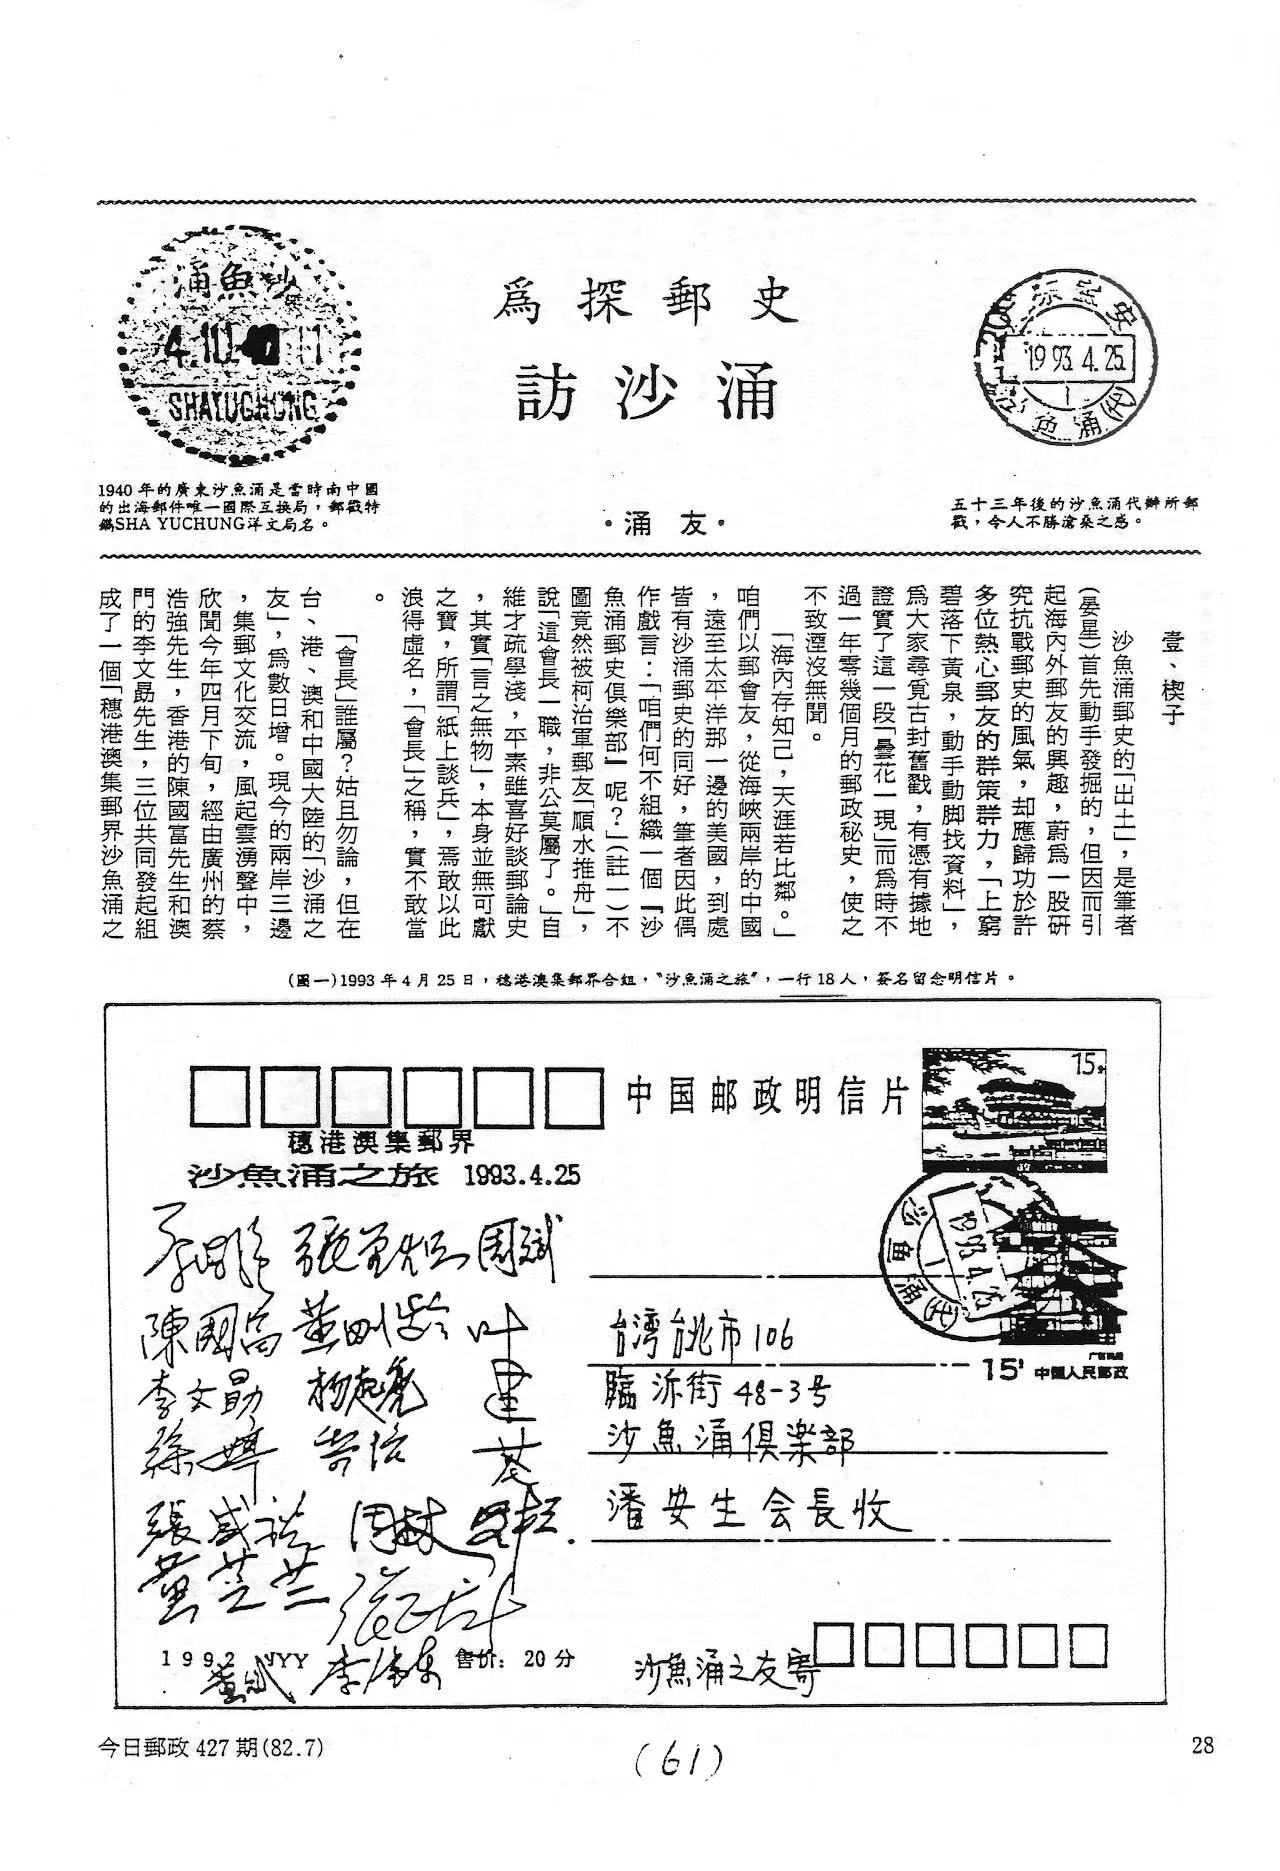 爲探郵史
訪沙涌
·涌友·
沙魚涌
4.10.40 11
SHAYUCHUNG
1940年的廣東沙魚涌是當時南中國
的出海郵件唯一國際互換局，郵戳特
鐫SHA YUCHUNG洋文局名。
宝安
1993.4.25
1
魚涌(代)
五十三年後的沙魚涌代辦所郵
戳，令人不勝滄桑之感。
壹、楔子
沙魚涌郵史的「出土」，是筆者
(晏星)首先動手發掘的，但因而引
起海內外郵友的興趣，蔚爲一股研
究抗戰郵史的風氣，却應歸功於許
多位熱心郵友的群策群力，「上窮
碧落下黃泉，動手動脚找資料」，
爲大家尋覓古封舊戳，有憑有據地
證實了這一段「曇花一現」而爲時不
過一年零幾個月的郵政秘史，使之
不致湮沒無聞。
「海內存知己，天涯若比鄰。」
咱們以郵會友，從海峽兩岸的中國
，遠至太平洋那一邊的美國，到處
皆有沙涌郵史的同好，筆者因此偶
作戲言：「咱們何不組織一個『沙
魚涌郵史俱樂部』呢？」(註一)不
圖竟然被柯治軍郵友「順水推舟」，
說「這會長一職，非公莫屬了。」自
維才疏學淺，平素雖喜好談郵論史
，其實「言之無物」，本身並無可獻
之寶，所謂「紙上談兵」，焉敢以此
浪得虛名，「會長」之稱，實不敢當
。
「會長」誰屬？姑且勿論，但在
台、港、澳和中國大陸的「沙涌之
友」，爲數日增。現今的兩岸三邊
，集郵文化交流，風起雲湧聲中，
欣聞今年四月下旬，經由廣州的蔡
浩強先生，香港的陳國富先生和澳
門的李文勗先生，三位共同發起組
成了一個「穗港澳集郵界沙魚涌之
(圖一)1993年4月25日，穗港澳集郵界合組，“沙魚涌之旅”，一行18人，簽名留念明信片。
中国邮政明信片
15分
穗港澳集郵界
沙魚涌之旅 1993.4.25
周斌
陳國富
叶
李文勗
楊起堯
建
徐婷
張威祺
周林
黃芝芷
1992 JYY
售价：20分
沙魚涌(代)
1993.4.25
1
15分 中国人民邮政
台湾台北市106
臨沂街48-3号
沙魚涌俱楽部
潘安生会長收
沙魚涌之友寄
今日郵政427期(82.7)
(61)
28